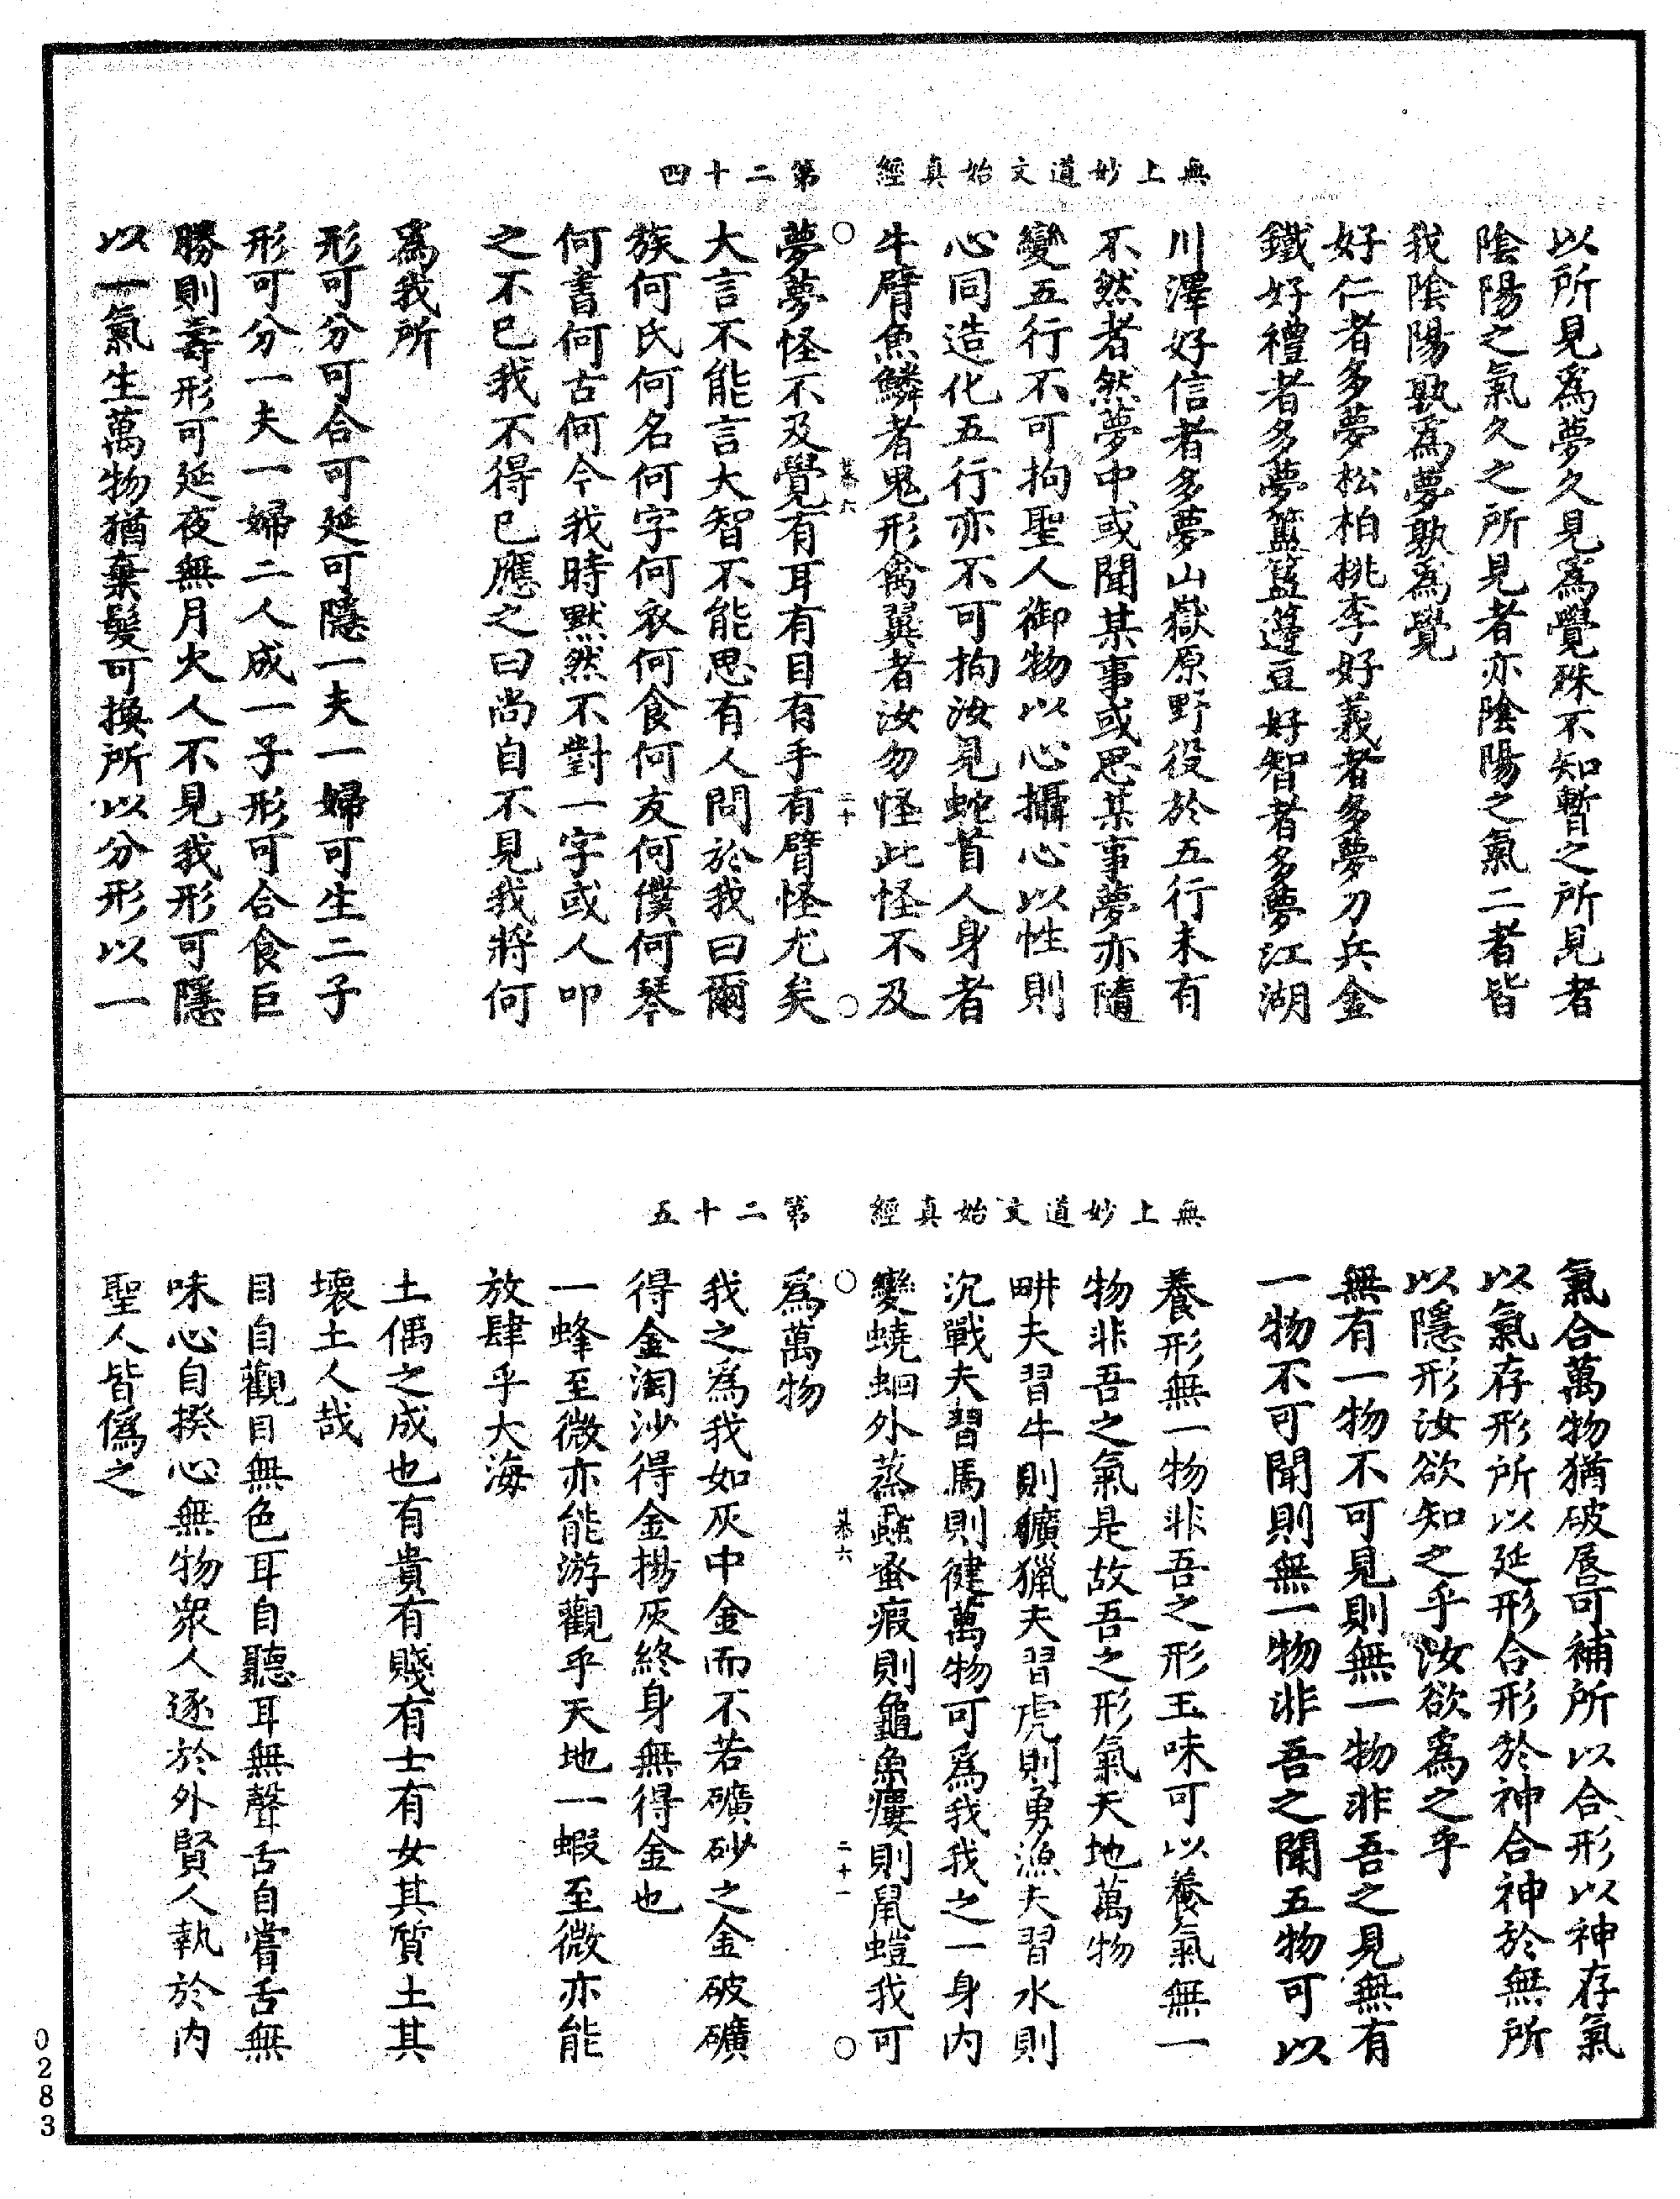 無上妙道文始真經　第二十四
以所見爲夢久見爲覺殊不知暫之所見者
陰陽之氣久之所見者亦陰陽之氣二者皆
我陰陽孰爲夢孰爲覺
好仁者多夢松柏桃李好義者多夢刀兵金
鐵好禮者多夢簠簋籩豆好智者多夢江湖
川澤好信者多夢山嶽原野役於五行未有
不然者然夢中或聞某事或思某事夢亦隨
變五行不可拘聖人御物以心攝心以性則
心同造化五行亦不可拘汝見蛇首人身者
牛臂魚鱗者鬼形禽翼者汝勿怪此怪不及
〇　　六　二十　〇
夢夢怪不及覺有耳有目有手有臂怪尤矣
大言不能言大智不能思有人問於我曰爾
族何氏何名何字何衣何食何友何僕何琴
何書何古何今我時默然不對一字或人叩
之不已我不得已應之曰尚自不見我將何
爲我所
形可分可合可延可隱一夫一婦可生二子
形可分一夫一婦二人成一子形可合食巨
勝則壽形可延夜無月火人不見我形可隱
以一氣生萬物猶棄髮可換所以分形以一
無上妙道文始真經　第二十五
氣合萬物猶破唇可補所以合形以神存氣
以氣存形所以延形合形於神合神於無所
以隱形汝欲知之乎汝欲爲之乎
無有一物不可見則無一物非吾之見無有
一物不可聞則無一物非吾之聞五物可以
養形無一物非吾之形五味可以養氣無一
物非吾之氣是故吾之形氣天地萬物
畊夫習牛則獷獵夫習虎則勇漁夫習水則
沉戰夫習馬則健萬物可爲我我之一身内
變蟯蛔外蒸蝨蚤瘕則龜魚瘻則鼠螘我可
〇　　六　二十一　〇
爲萬物
我之爲我如灰中金而不若礦砂之金破礦
得金淘沙得金揚灰終身無得金也
一蜂至微亦能游觀乎天地一蝦至微亦能
放肆乎大海
土偶之成也有貴有賤有士有女其質土其
壞土人哉
目自觀目無色耳自聽耳無聲舌自嘗舌無
味心自揆心無物衆人逐於外賢人執於内
聖人皆僞之
0283